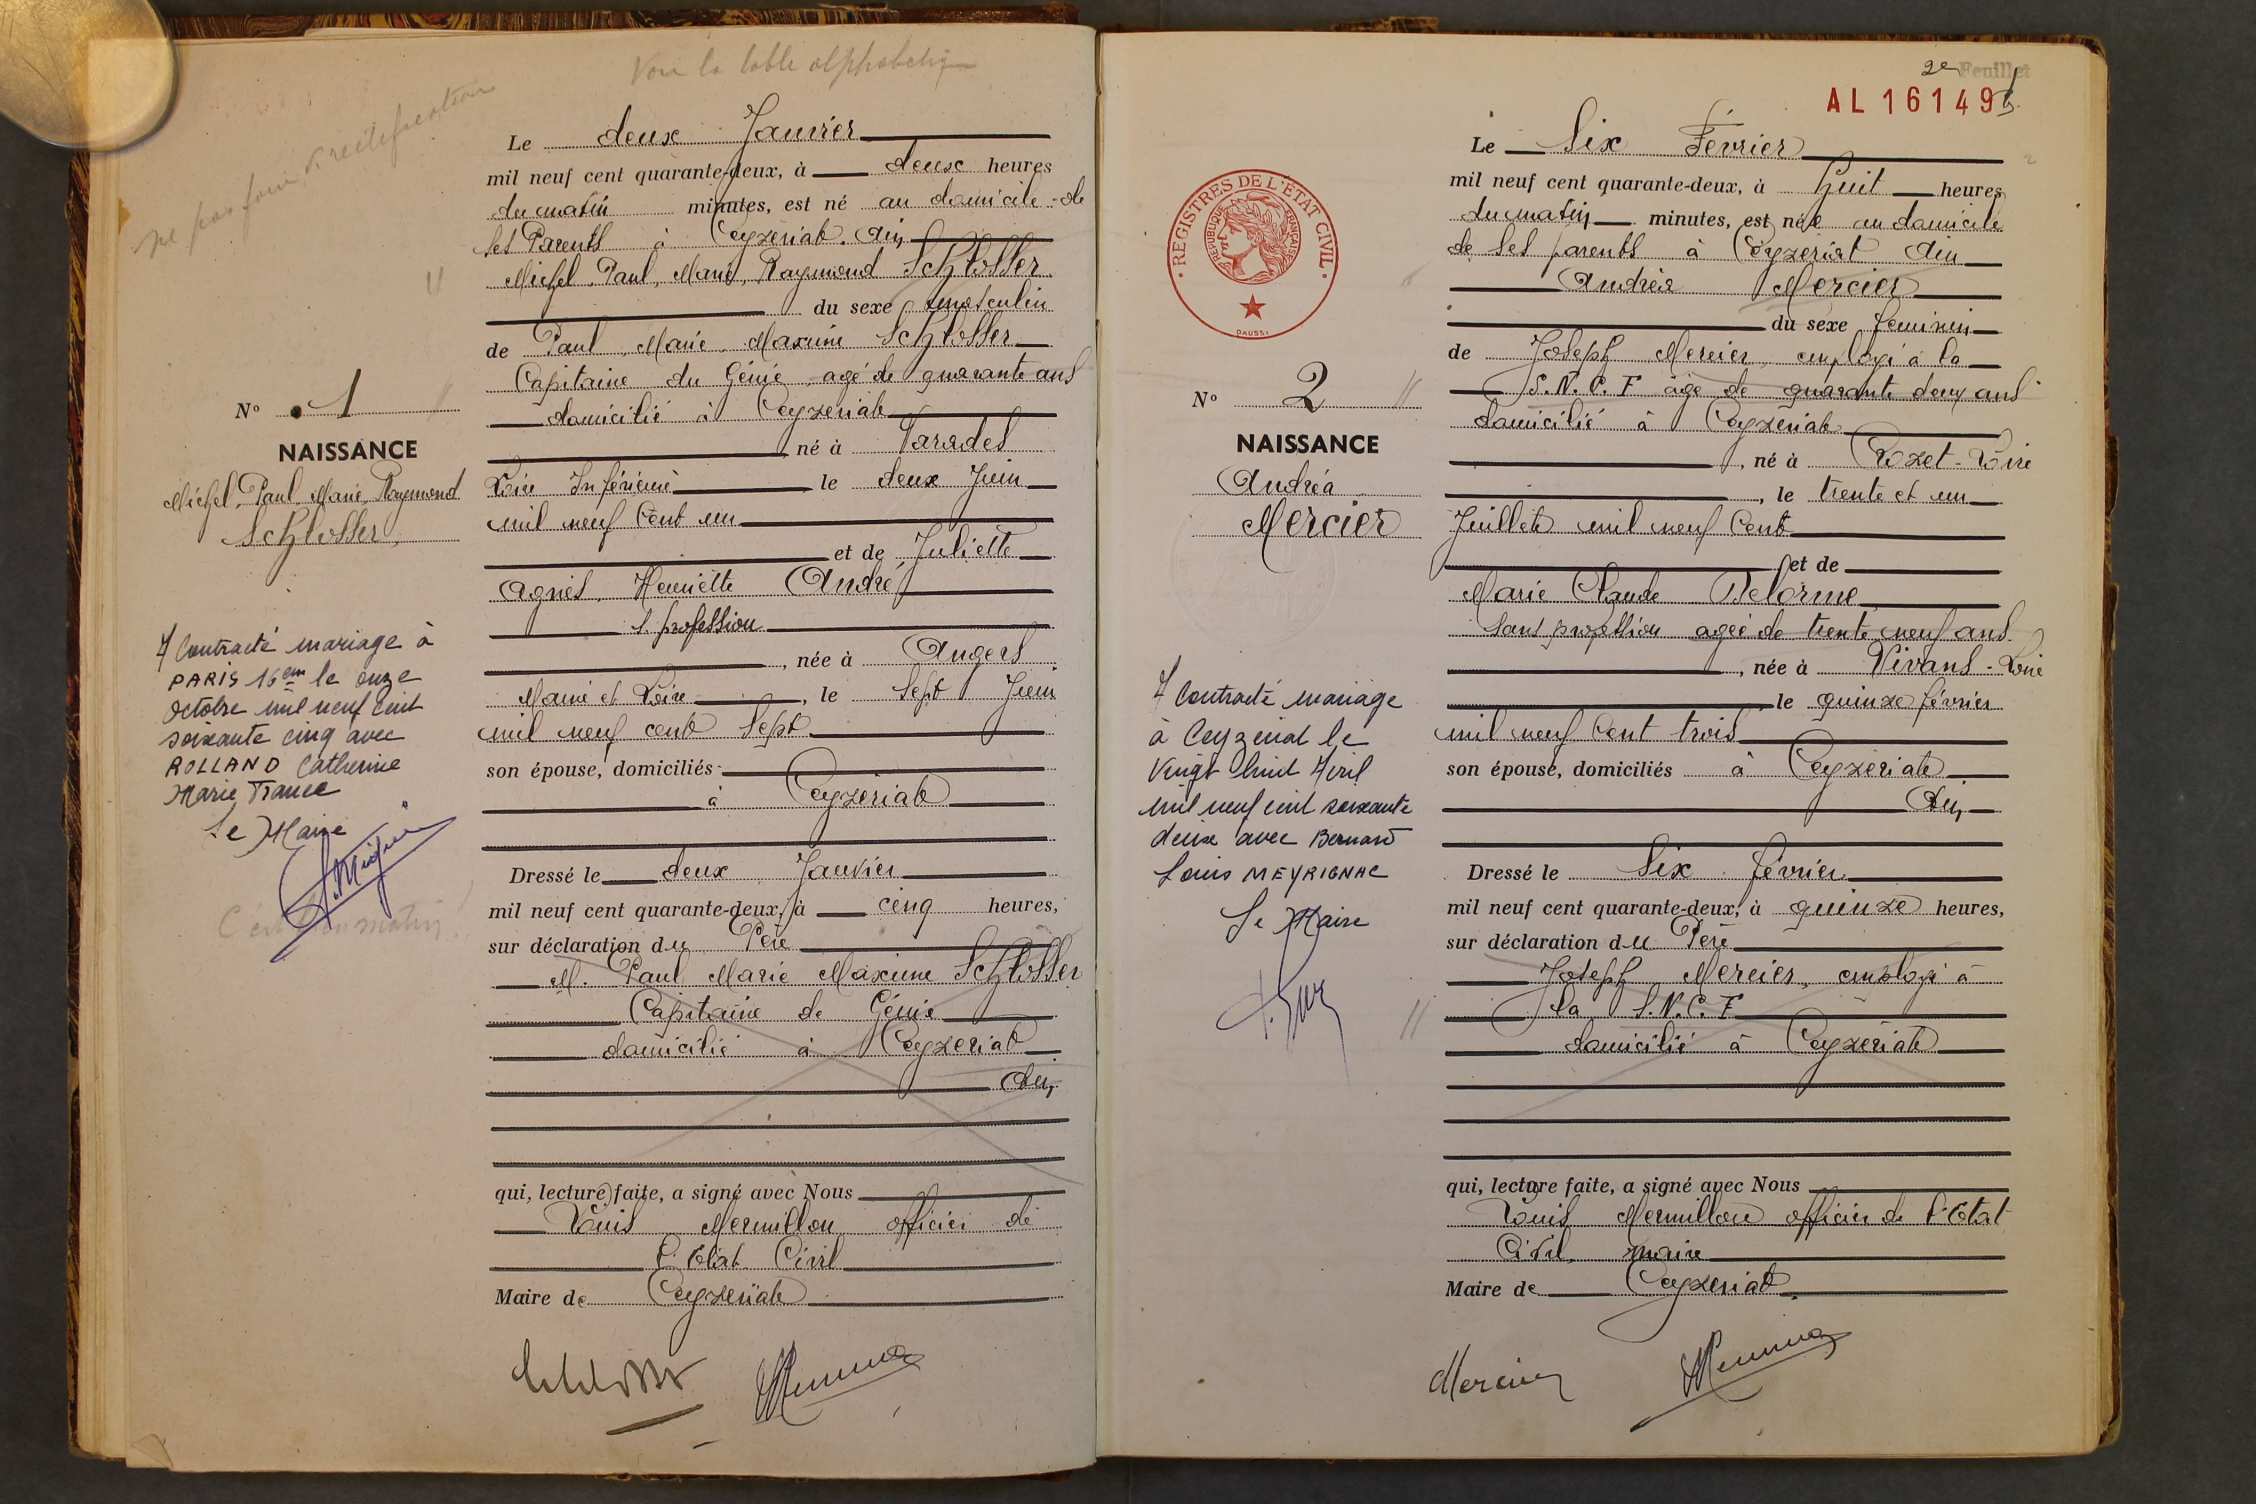 Voir la table alphabétiq
ne pas fournir, rectification
Le deux Janvier
mil neuf cent quarante-deux, à deux heures
du matin minutes, est né au domicile de
ses Parents à Ceyzeriat. Ain
Michel, Paul, Marie, Raymond Schlosser
du sexe masculin
de Paul, Marie, Maxime Schlosser
Capitaine du Génie agé de quarante ans
domicilié à Ceyzeriat
né à Varades
Loire Inférieure le deux Juin
mil neuf Cent un
et de Juliette
Agnès, Henriette André
s. profession
, née à Angers
Maine et Loire , le Sept Juin
mil neuf cent Sept
son épouse, domiciliés
à Ceyzeriat
Dressé le deux Janvier
mil neuf cent quarante-deux, à cinq heures,
sur déclaration du Père
M. Paul Marie Maxime Schlosser
Capitaine de Génie
domicilié à Ceyzeriat
Ain
qui, lecture faite, a signé avec Nous
Louis Mermillon officier de
l'Etat Civil
Maire de Ceyzeriat
N° 1
NAISSANCE
Michel, Paul, Marie, Raymond
Schlosser
Contracté mariage à
PARIS 16em le onze
octobre mil neuf cent
soixante cinq avec
ROLLAND Catherine
Marie France
Le Maire
C'est matin!
2e Feuillet
AL 16149
REGISTRES DE L'ÉTAT CIVIL
RÉPUBLIQUE FRANÇAISE
DAUSSY
Le Six Février
mil neuf cent quarante-deux, à huit heures
du matin minutes, est née au domicile
de ses parents à Ceyzeriat Ain
Andréa Mercier
du sexe feminin
de Joseph Mercier, employé à la
S.N.C.F âgé de quarante deux ans
domicilié à Ceyzeriat
, né à Lozet-Loire
, le trente et un
Juillet mil neuf Cent
et de
Marie Claude Delorme
sans profession agée de trente neuf ans
, née à Vivans-Loire
le quinze février
mil neuf Cent trois
son épouse, domiciliés à Ceyzeriat
Ain
Dressé le Six février
mil neuf cent quarante-deux, à quinze heures,
sur déclaration du Père
Joseph Mercier, employé à
la S.N.C.F
domicilié à Ceyzeriat
qui, lecture faite, a signé avec Nous
Louis Mermillon officier de l'Etat
Civil maire
Maire de Ceyzeriat
Mercier
N° 2
NAISSANCE
Andréa
Mercier
Contracté mariage
à Ceyzériat le
Vingt huit Avril
mil neuf cent soixante
deux avec Bernard
Louis MEYRIGNAC
Le Maire